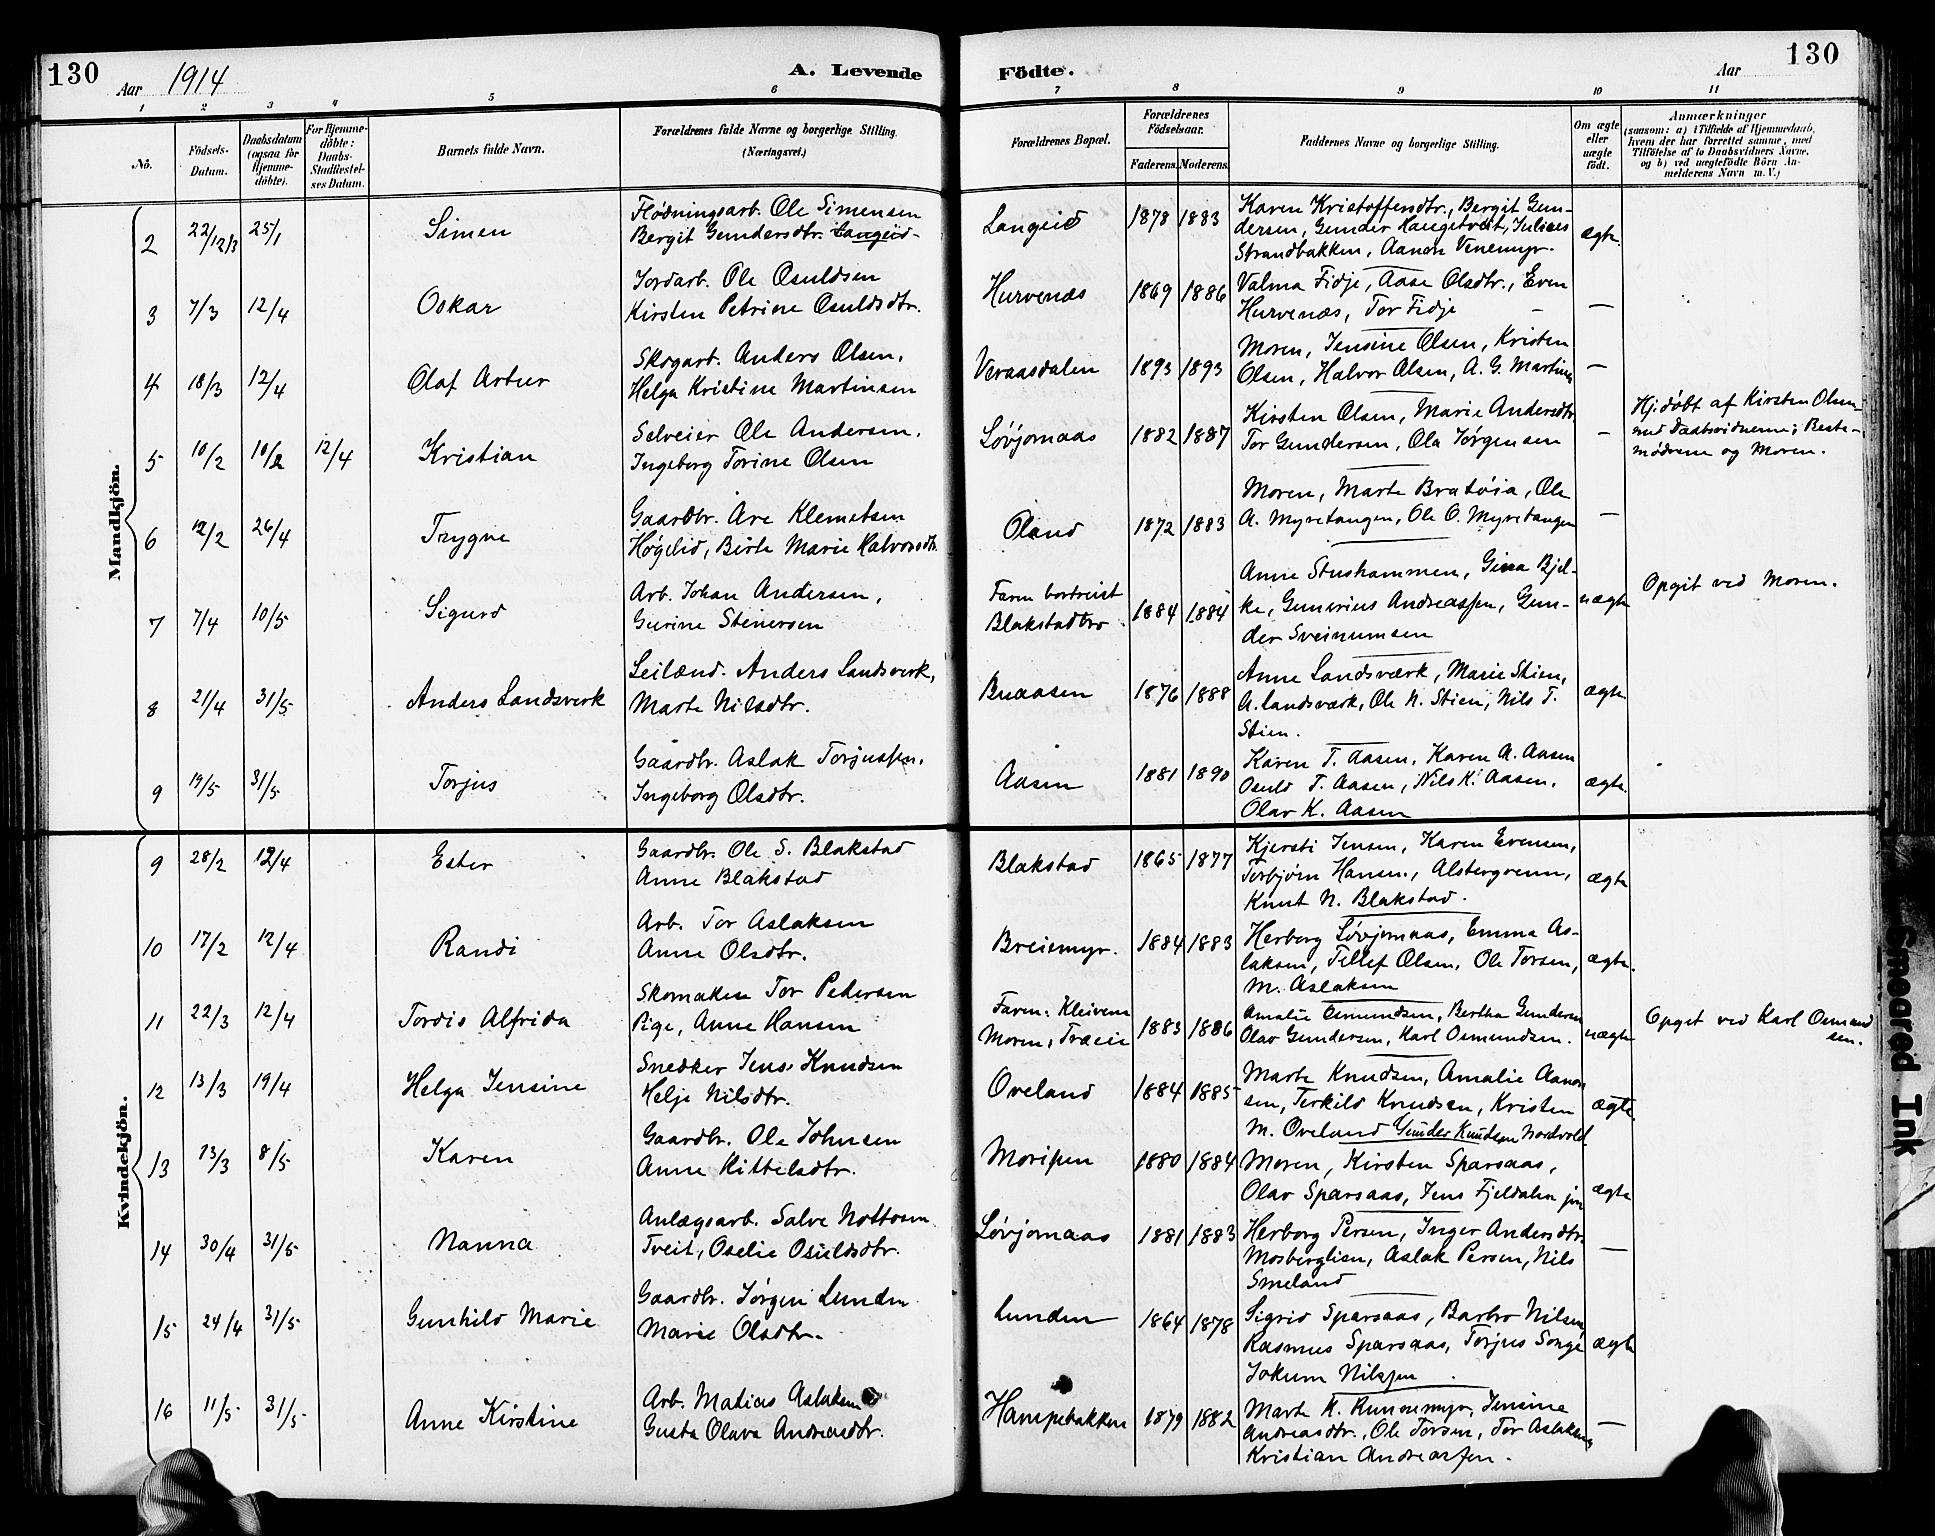 130
Aar 1914
A. Levende
Födte.
Aar
130
1 2 3 4 5 6 7 8 9 10 11
No.
Födsels-Datum.
Daabsdatum (ogsaa för Hjemme-döbte).
For Hjemme-döbte: Daabs-Stadfæstel-ses Datum.
Barnets fulde Navn.
Forældrenes fulde Navne og borgerlige Stilling.
(Næringsvei.)
Forældrenes Bopæl.
Forældrenes Födselsaar.
Faderens. Moderens.
Faddernes Navne og borgerlige Stilling.
Om ægte eller uægte födt.
Anmærkninger
(saasom: a) i Tilfælde af Hjemmedaab,
hvem der har forrettet samme, med
Tilföielse af to Daabsvidners Navne,
og b) ved uægtefödte Börn An-
melderens Navn m. V.)
Mandkjön.
2 22/12/13 25/1 Simen
Flødningsarb. Ole Simensen
Bergit Gundersdtr. Langeid
Langeid 1878 1883
Karen Kristoffersdtr., Bergit Gun-
dersen, Gunder Haugetveit, Julius
Strandbakken, Aanon Venemyr.
ægte
3 7/3 12/4 Oskar
Jordarb. Ole Osuldsen
Kirsten Petrine Osuldsdtr.
Hurvenæs 1869 1886
Valma Fidje, Aase Olsdtr., Even
Hurvenæs, Tor Fidje
—
4 18/3 12/4 Olaf Artur
Skogarb. Anders Olsen,
Helga Kristine Martinsen
Veraasdalen 1893 1893
Moren, Jensine Olsen, Kristen
Olsen, Halvor Olsen, A. G. Martinsen
—
5 10/2 10/2 12/4 Kristian
Selveier Ole Andersen,
Ingeborg Torine Olsen
Løvjomaas 1882 1887
Kirsten Olsen, Marie Andersdtr.
Tor Gundersen, Ola Jørgensen
—
Hj.døbt af Kirsten Olsen
med Daabsvidnerne; Beste-
mødrene og Moren.
6 12/2 26/4 Trygve
Gaardbr. Are Klemetsen
Høgelid, Birte Marie Halvorsdtr.
Øland 1872 1883
Moren, Marte Bratøia, Ole
A. Myretangen, Ole O. Myretangen
—
7 7/4 10/5 Sigurd
Arb. Johan Andersen,
Gurine Stenersen
Faren bortreist
Blakstadbro 1884 1884
Anne Stushammen, Gina Bjel-
ke, Gunerius Andreassen, Gun-
der Sveinumsen
uægte
Opgit ved Moren.
8 21/4 31/5 Anders Landsverk
Leilænd. Anders Landsverk,
Marte Nilsdtr.
Bruaasen 1876 1888
Anne Landsværk, Marie Stien,
A. Landsværk, Ole N. Stien, Nils T.
Stien.
ægte
9 19/5 31/5 Torjus
Gaardbr. Aslak Torjussen,
Ingeborg Olsdtr.
Aasen 1881 1890
Karen T. Aasen, Karen A. Aasen
Osuld T. Aasen, Nils K. Aasen,
Olav K. Aasen
ægte
Kvindekjön.
9 28/2 12/4 Ester
Gaardbr. Ole S. Blakstad
Anne Blakstad
Blakstad 1865 1877
Kjersti Jensen, Karen Evensen,
Torbjørn Hansen, Alstergrenn,
Knut N. Blakstad.
ægte
10 17/2 12/4 Randi
Arb. Tor Aslaksen
Anne Olsdtr.
Breiemyr. 1884 1883
Herborg Løvjomaas, Emma As-
laksen, Tellef Olsen, Ole Torsen,
M. Aslaksen
ægte.
11 22/3 12/4 Tordis Alfrida
Skomaker Tor Pedersen
Pige, Anne Hansen
Faren: Kleivene
Moren: Traeie 1883 1886
Amalie Osmundsen, Bertha Gundersen
Olav Gundersen, Karl Osmundsen.
uægte
Opgit ved Karl Osmund
sen.
12 13/3 19/4 Helga Jensine
Snedker Jens Knudsen
Helje Nilsdtr.
Oveland 1884 1885
Marte Knudsen, Amalie Aanon
sen, Terkild Knudsen, Kristen
M. Oveland Gunder Knudsen Nordvold
ægte
13 13/3 8/5 Karen
Gaardbr. Ole Johnsen
Anne Kittelsdtr.
Moripen 1880 1884
Moren, Kirsten Sparsaas,
Olav Sparsaas, Jens Fjeldalen jun
ægte
14 30/4 31/5 Nanna
Anlægsarb. Salve Nottosen
Tveit, Oselie Osuldsdtr.
Løvjomaas 1881 1883
Herborg Persen, Inger Andersdtr.
Mosberglien, Aslak Persen, Nils
Smeland
—
15 24/4 31/5 Gunhild Marie
Gaardbr. Jørgen Lunden
Marie Olsdtr.
Lunden 1864 1878
Sigrid Sparsaas, Barbro Nilsen
Rasmus Sparsaas, Torjus Songe
Jokum Nilssen
ægte
16 11/5 31/5 Anne Kirstine
Arb. Matias Aslaksen
Gusta Olava Andreasdtr.
Hampebakken 1879 1882
Marte K. Runnemyr, Jensine
Andreasdtr., Ole Torsen, Tor Aslaksen
Kristian Andreassen.
—
Smeared Ink